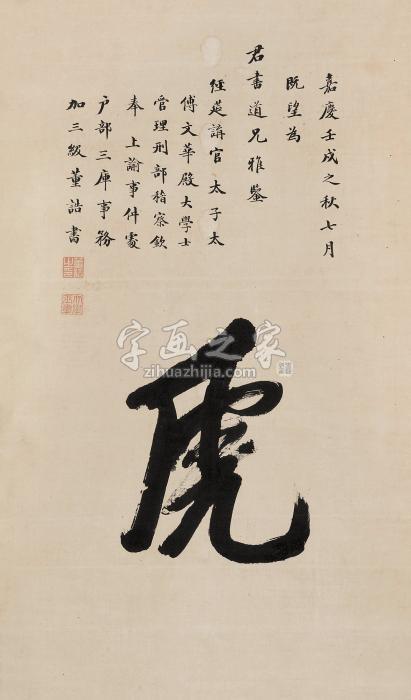 嘉慶壬戌之秋七月
既望為
君書道兄雅鑒
經筵講官太子太
傅文華殿大學士
管理刑部稽察欽
奉上諭事件處
户部三庫事務
加三級董誥書
虎
字画之家
zihuazhijia.com